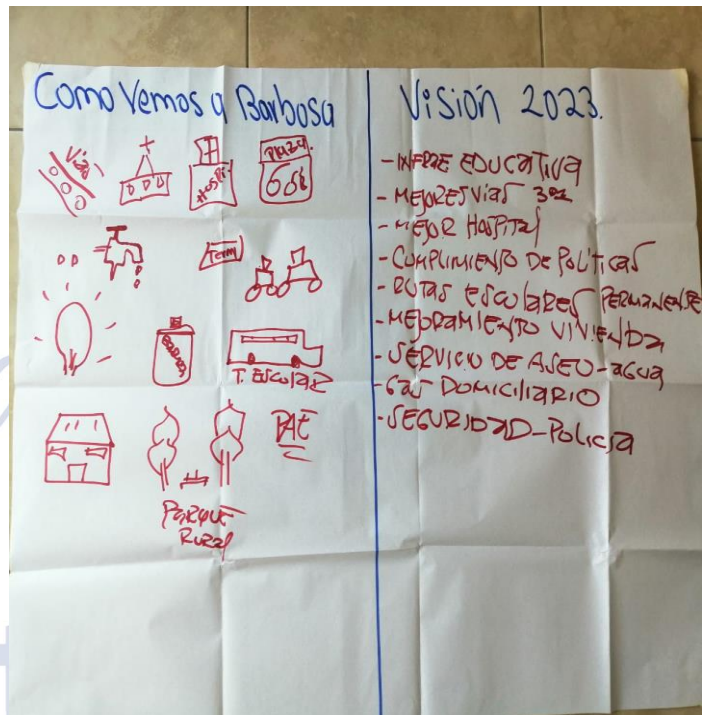 Como Vemos a Barbosa
Vias
Hospi
PLAZA
Term
T. ESCOLAR
PAE
PARQUE
RURAL
Visión 2023.
- INFRAE EDUCATIVA
- MEJORES VIAS 3ra
- MEJOR HOSPITAL
- CUMPLIMIENTO DE POLÍTICAS
- RUTAS ESCOLARES PERMANENTE
- MEJORAMIENTO VIVIENDA
- SERVICIO DE ASEO - AGUA
- GAS DOMICILIARIO
- SEGURIDAD - POLICIA